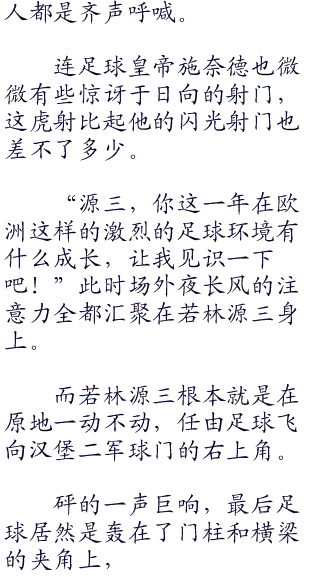 人都是齐声呼喊。
连足球皇帝施奈德也微
微有些惊讶于日向的射门，
这虎射比起他的闪光射门也
差不了多少。
“源三，你这一年在欧
洲这样的激烈的足球环境有
什么成长，让我见识一下
吧！”此时场外夜长风的注
意力全都汇聚在若林源三身
上。
而若林源三根本就是在
原地一动不动，任由足球飞
向汉堡二军球门的右上角。
砰的一声巨响，最后足
球居然是轰在了门柱和横梁
的夹角上，